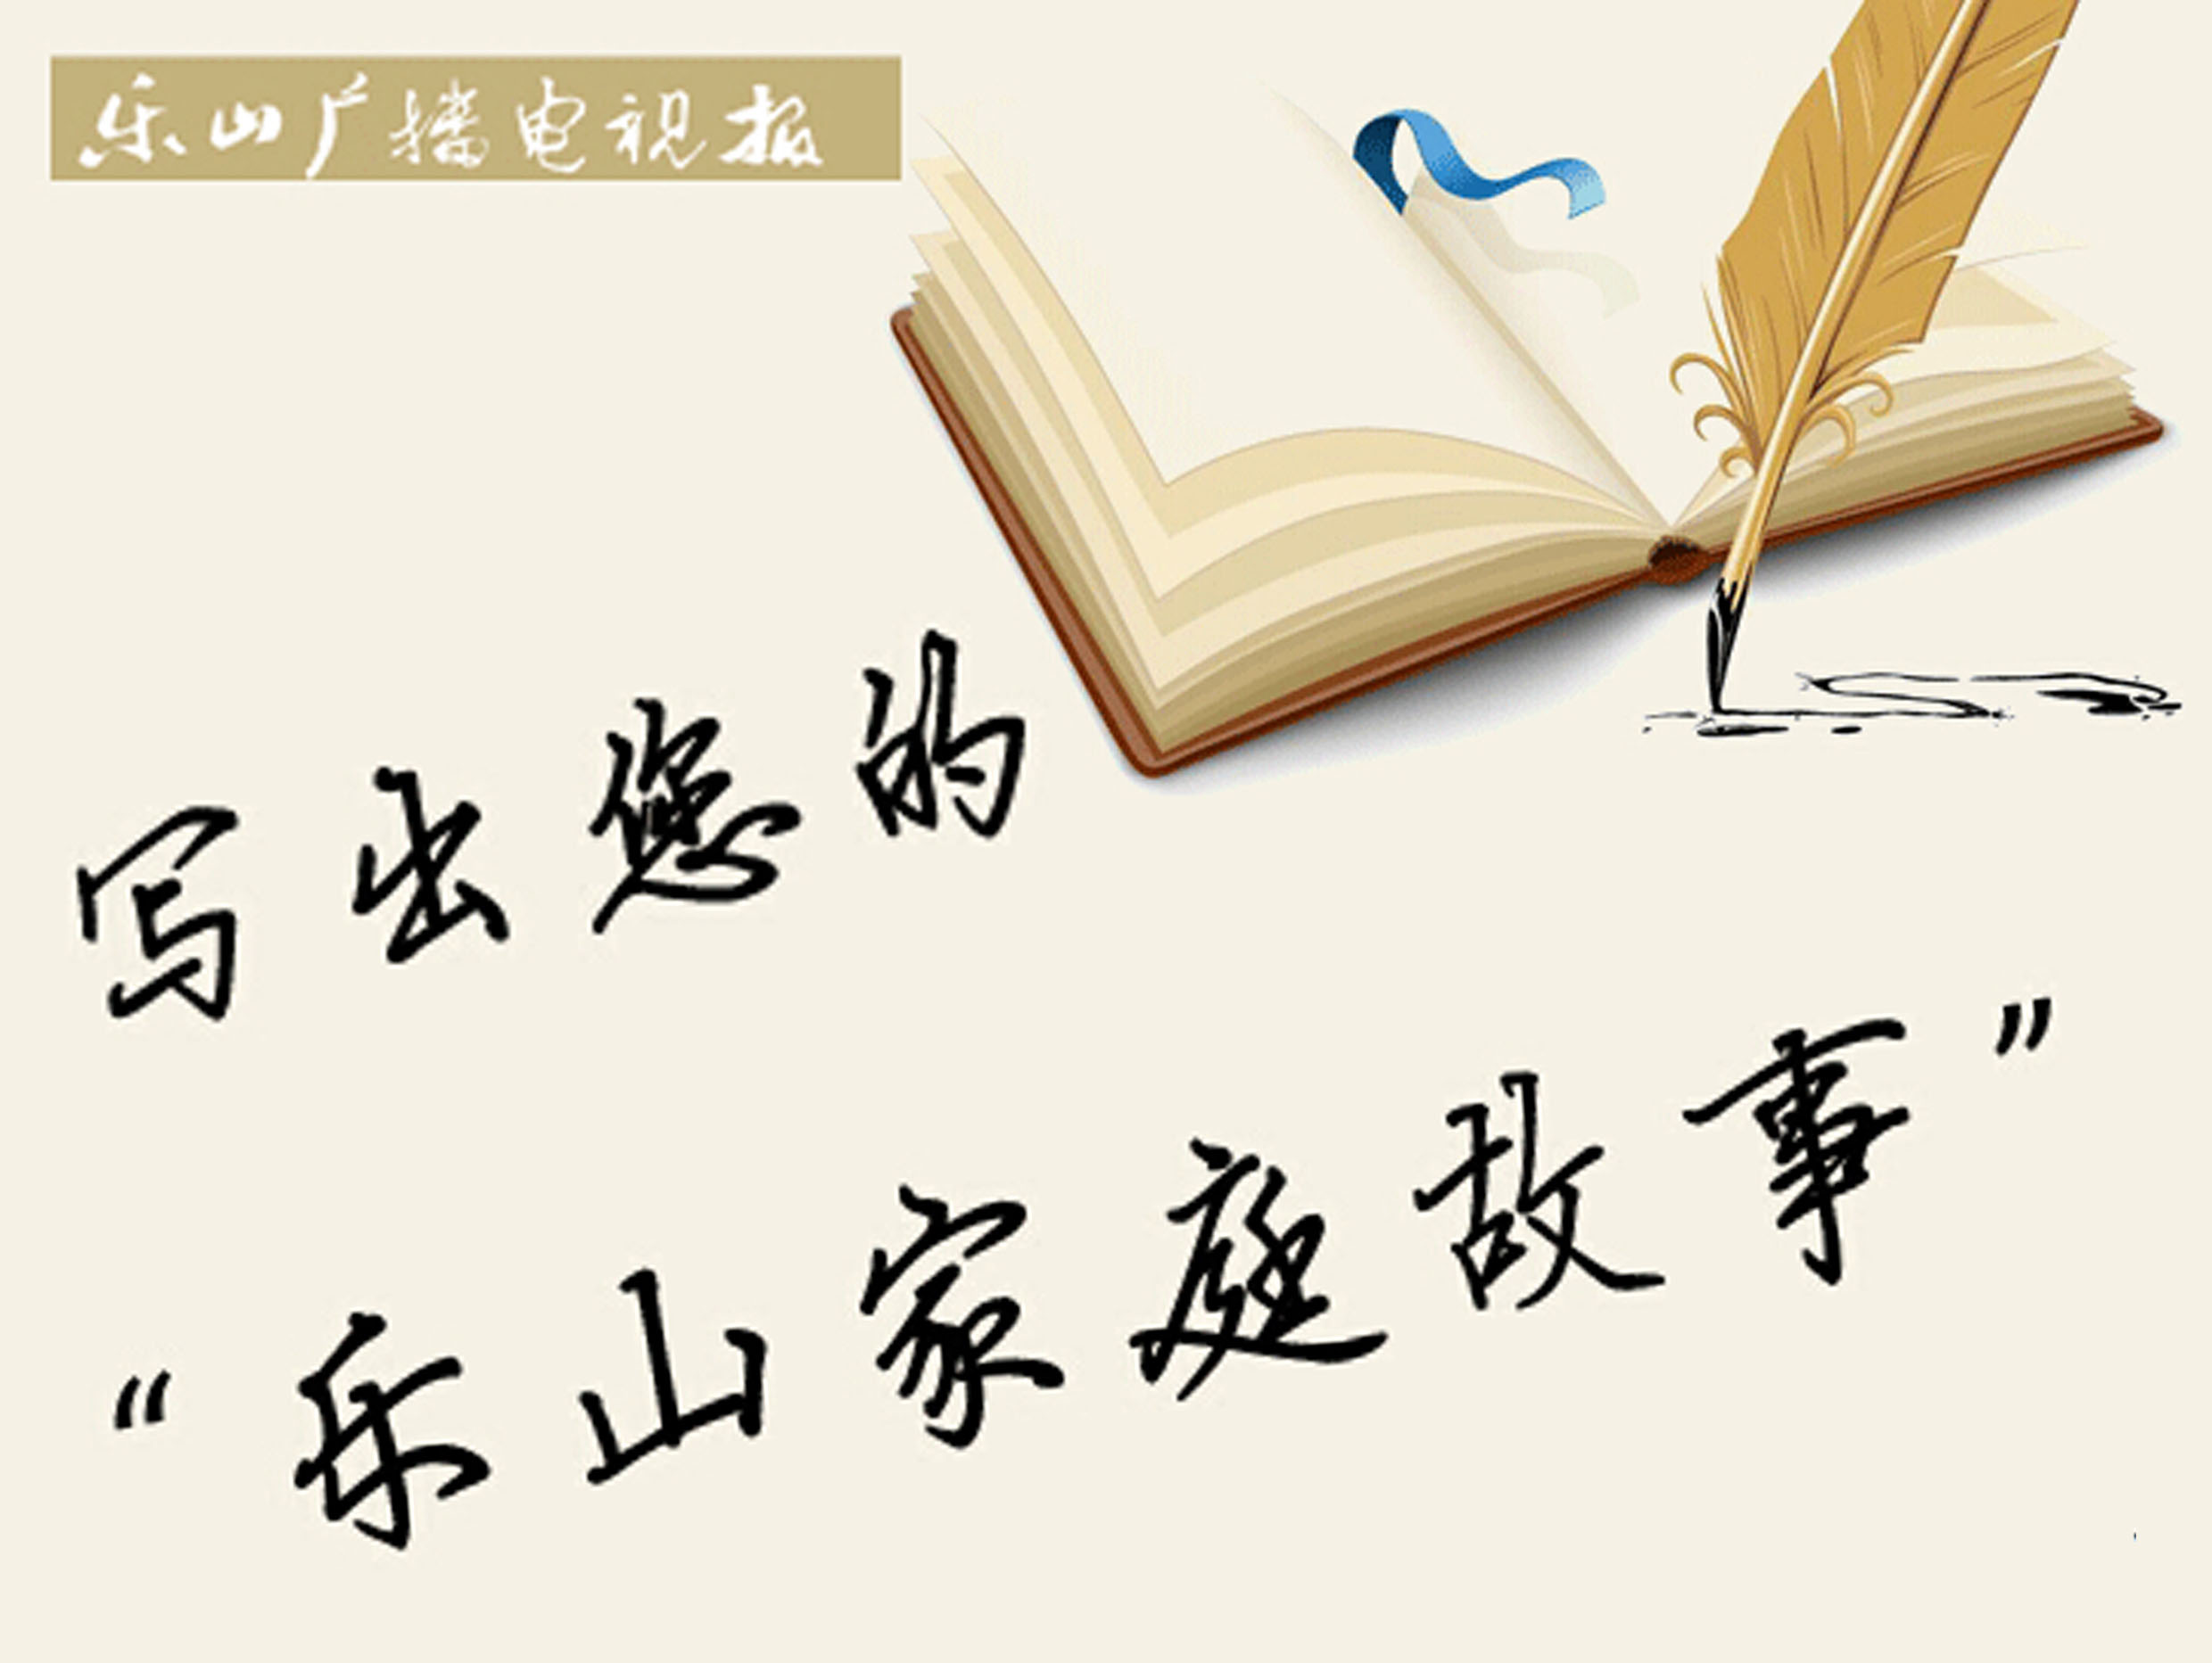 乐山广播电视报
写出您的
“乐山家庭故事”